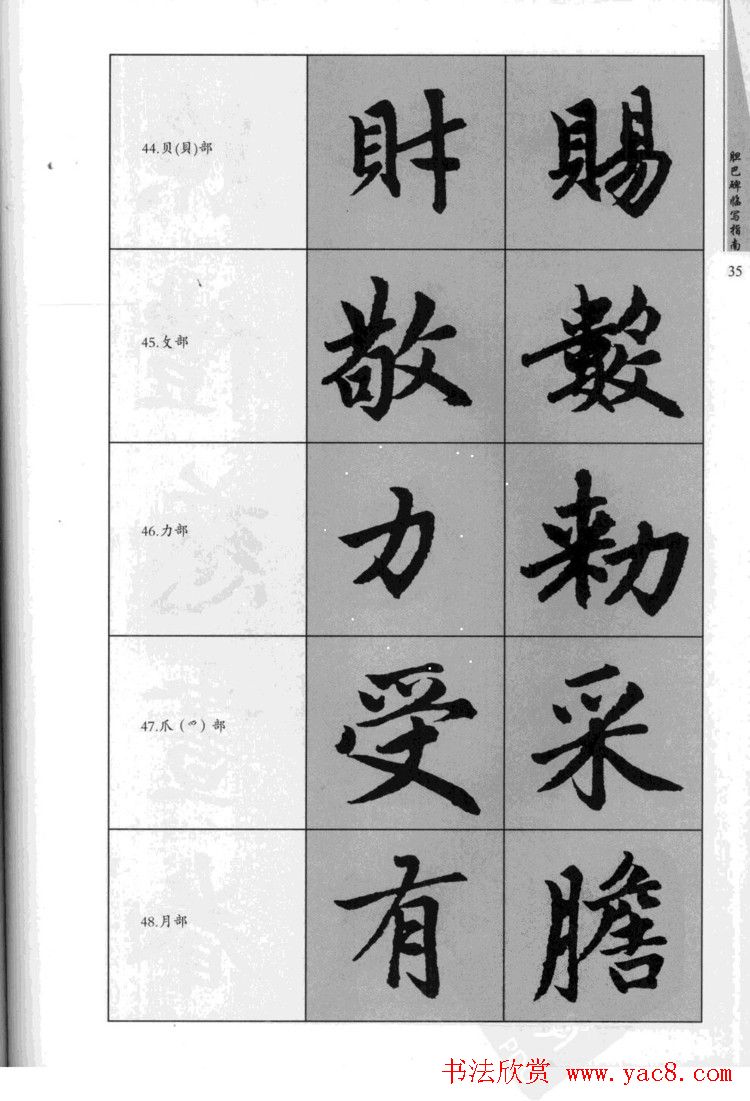 胆巴碑临写指南
35
44.贝(貝)部
財 賜
45.攵部
敬 數
46.力部
力 勑
47.爪（爫）部
受 采
48.月部
有 膽
书法欣赏 www.yac8.com